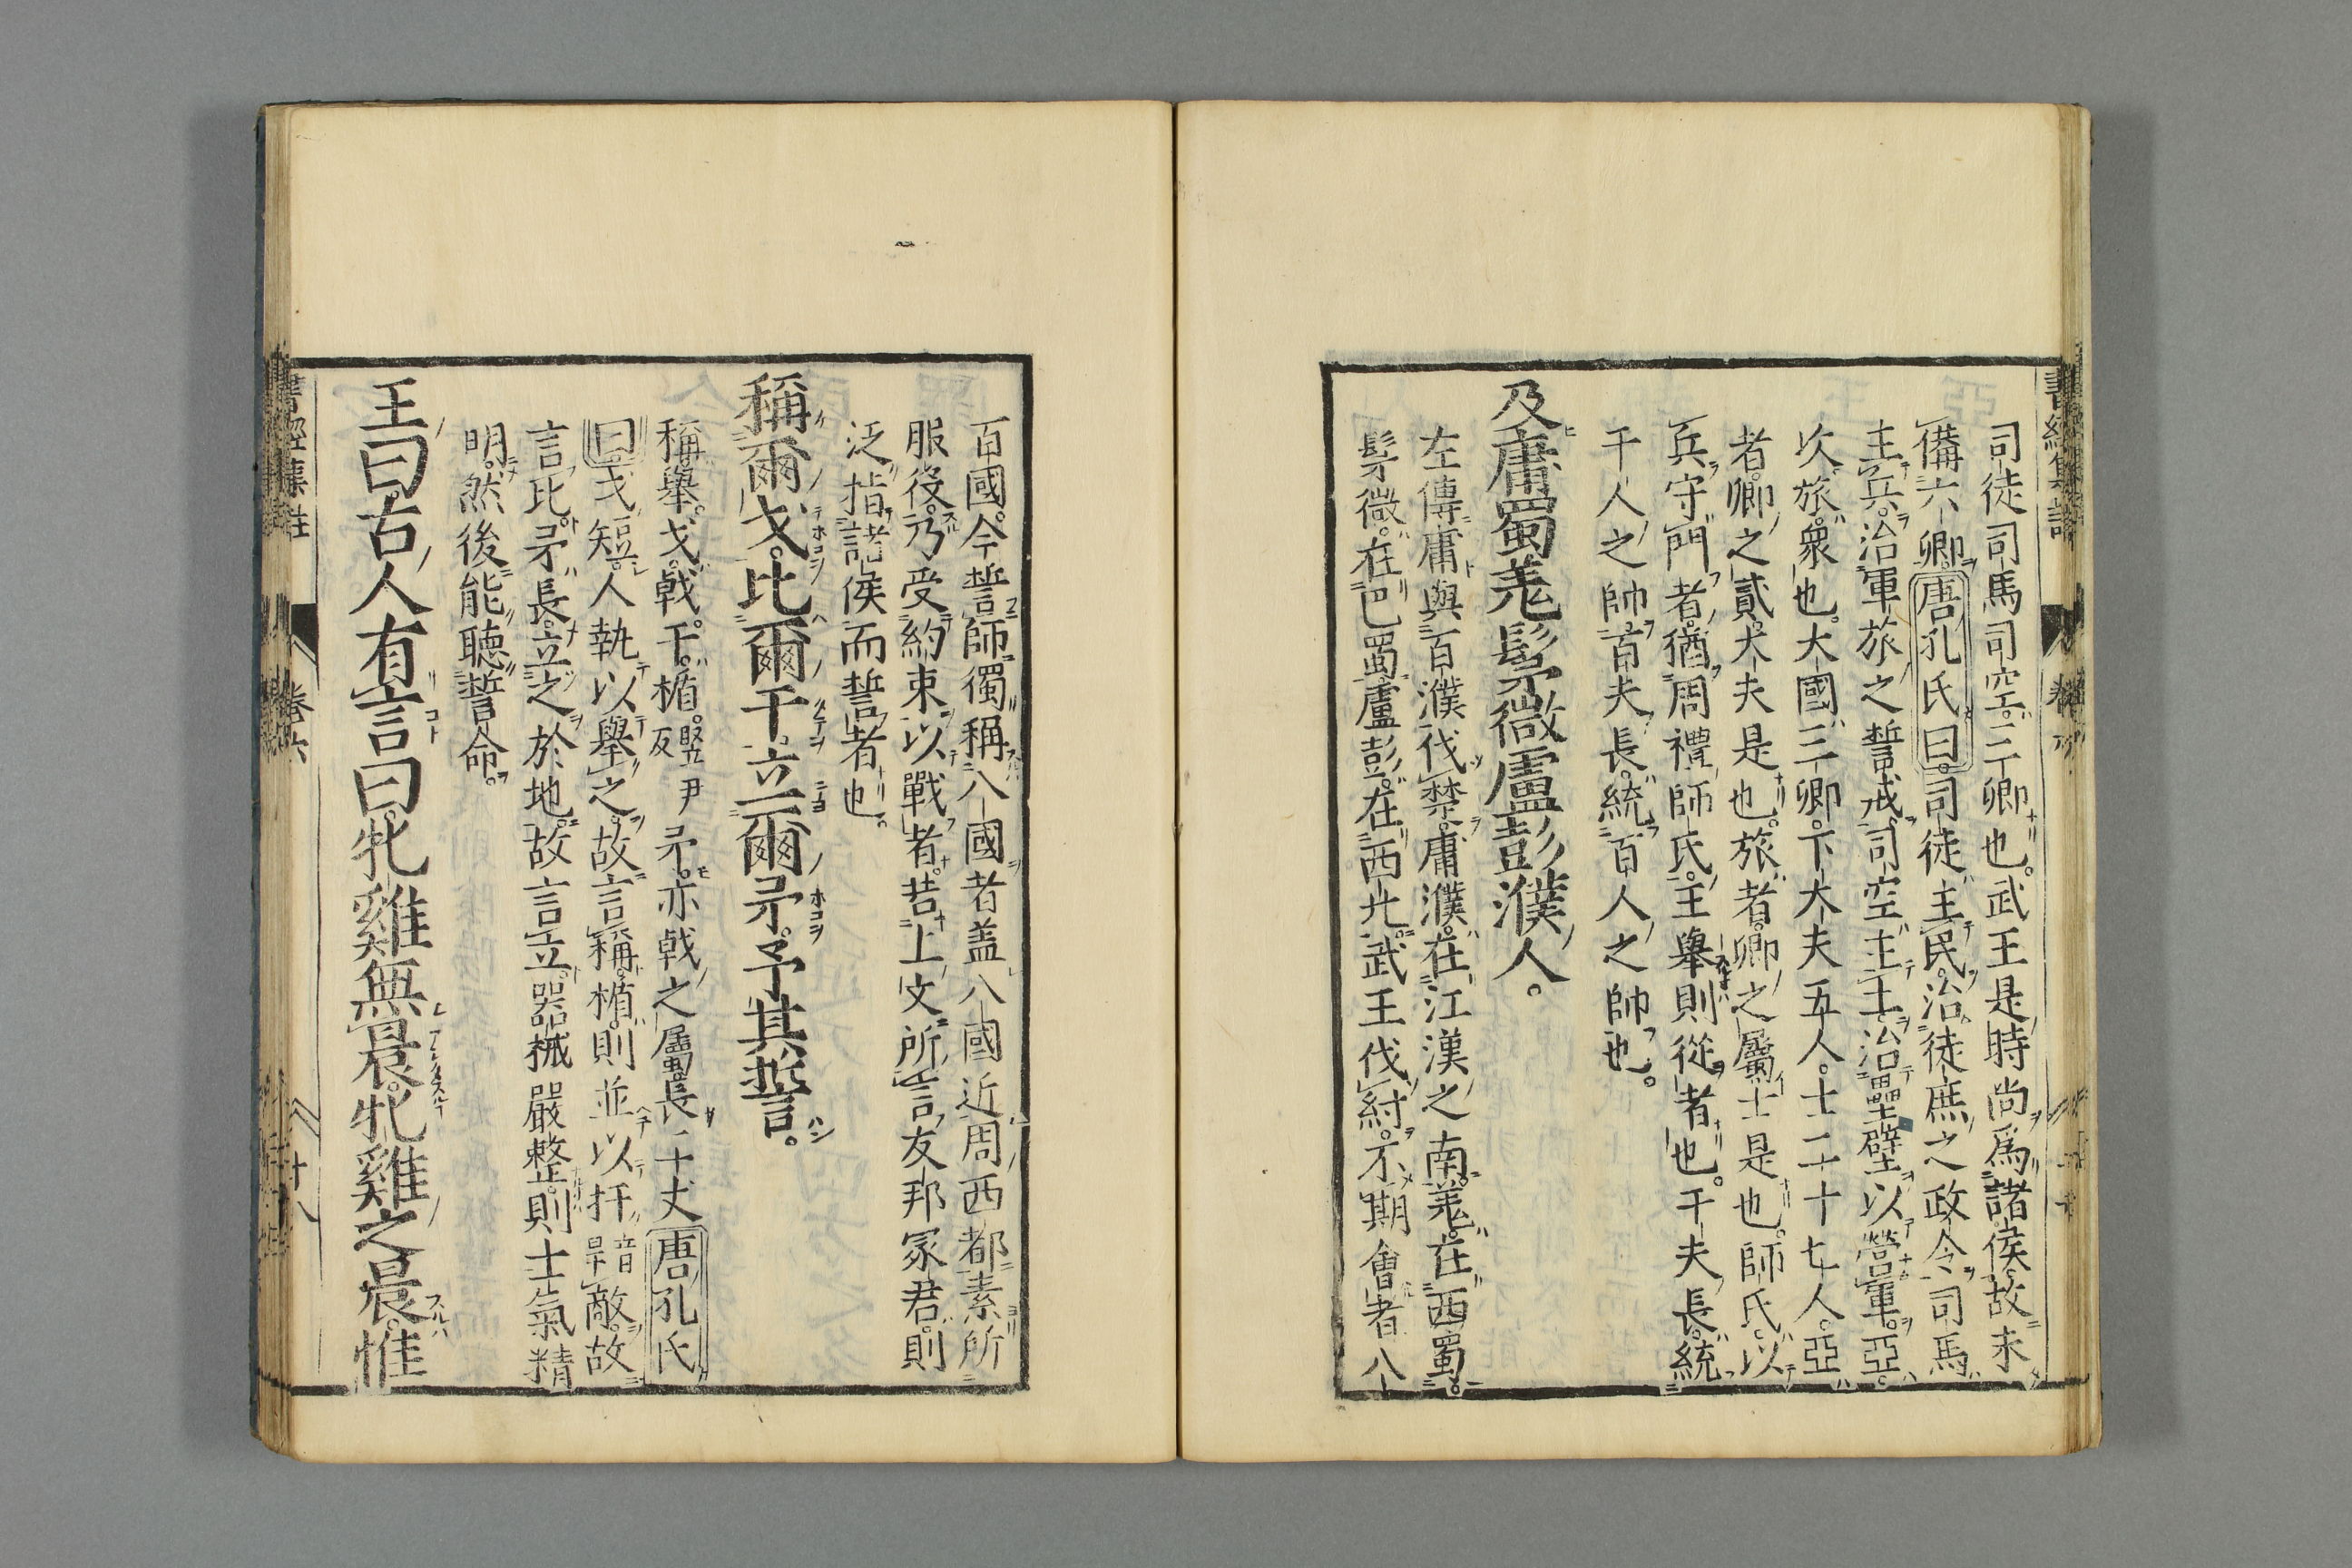 司徒司馬司空三卿也。武王是時尚爲諸侯。故未
備六卿。唐孔氏曰。司徒主民。治徒庶之政令。司馬
主兵。治軍旅之誓戒。司空主土。治壘壁以營軍。亞。
次。旅。衆也。大國三卿。下大夫五人。士二十七人。亞
者。卿之貳。大夫是也。旅者。卿之屬。士是也。師氏。以
兵守門者。猶周禮師氏。王舉則從者也。千夫長。統
千人之帥。百夫長。統百人之帥也。
及庸蜀羗髳微盧彭濮人。
左傳庸與百濮伐楚。庸濮。在江漢之南。羗。在西蜀。
髳微。在巴蜀。盧彭。在西北。武王伐紂。不期會者八
百國。今誓師獨稱八國者。盖八國近周西都。素所
服役。乃受約束以戰者。若上文所言友邦冢君。則
泛指諸侯而誓者也。
稱爾戈。比爾干。立爾矛。予其誓。
稱。舉。戈。戟。干。楯。竪尹反 矛。亦戟之屬。長二丈。唐孔氏
曰。戈短。人執以舉之。故言稱。楯。則並以扞音旱敵。故
言比。矛長。立之於地。故言立。器械嚴整。則士氣精
明。然後能聽誓命。
王曰。古人有言曰。牝雞無晨。牝雞之晨。惟
書經集註
卷六
十八